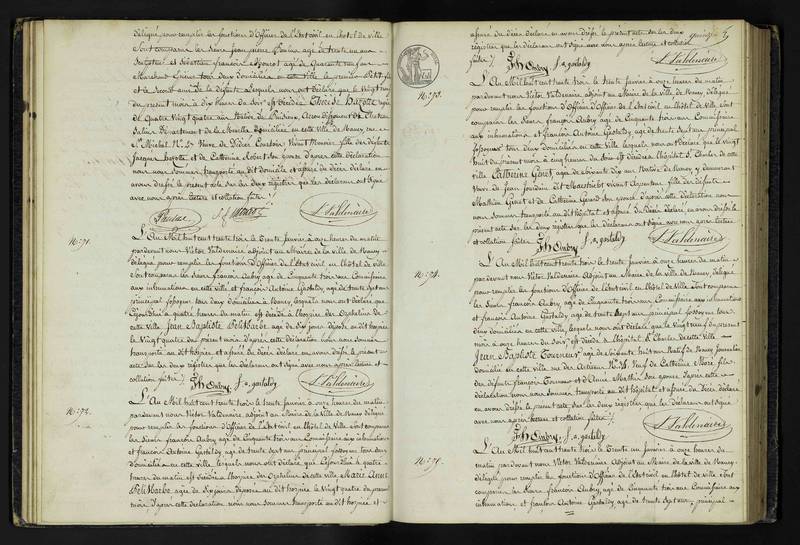 délégué pour remplir les fonctions d'Officier de l'Etat civil en l'hôtel de Ville
Sont comparus les Sieurs Jean pierre agé de trente un ans
et Sébastien françois agé de Quarante un ans
tous deux domiciliés en cette ville, le premier
et le Second ami de la défunte lesquels nous ont déclaré que le Vingt neuf
du présent mois à dix heures du Soir, est Décédée Thérèse Hazotte agée
de Quatre Vingt quatre ans Native de Arrondissement de Château
Salins Département de la Meurthe domiciliée en cette ville de Nancy rue
St Michel No. 5. Veuve de Didier Vivant Meunier fille des défunts
Jacques hazotte et de Catherine Robert Son gendre d'après cette déclaration
nous nous sommes transporté au dit domicile et assuré du décès déclaré en
avons dressé le présent acte sur les deux registres que les déclarants ont signé
avec nous après lecture et collation faites /.
V. Valdenaire
No. 71.
L'An Mil huit cent trente trois le Trente Janvier à onze heures du matin
pardevant nous Victor Valdenaire Adjoint au Maire de la Ville de Nancy
délégué pour remplir les fonctions d'Officier de l'Etat civil en l'hôtel de ville
Sont comparus les Sieurs françois Aubry agé de Cinquante trois ans Commissaire
aux inhumations et françois Antoine Gastaldy agé de trente sept ans
principal fossoyeur tous deux domiciliés à Nancy, lesquels nous ont déclaré que
Cejourd'hui à quatre heures du matin est décédé à l'hospice des Orphelins de
cette ville Jean Baptiste Delibarbe agé de Six jours déposé au dit hospice
le Vingt quatre du présent mois d'après cette déclaration nous nous sommes
transporté au dit hospice et assuré du décès déclaré en avons dressé le présent
acte sur les deux registres que les déclarants ont signé avec nous après lecture et
collation faites /.
fs Aubry, f. a. gastaldy
V. Valdenaire
No. 72.
L'An Mil huit cent trente trois le trente Janvier à onze heures du matin
pardevant nous Victor Valdenaire adjoint au Maire de la Ville de Nancy délégué
pour remplir les fonctions d'Officier de l'Etat civil en l'hôtel de Ville Sont comparus
les Sieurs françois Aubry agé de Cinquante trois ans Commissaire aux inhumations
et françois Antoine Gastaldy agé de trente sept ans principal fossoyeur tous deux
domiciliés en cette ville, lesquels nous ont déclaré que Cejourd'hui à quatre
heures du matin est décédée à l'hospice des Orphelins de cette ville Marie Anne
Delibarbe, agée de Six jours déposée au dit hospice le Vingt quatre du présent
mois d'après cette déclaration nous nous sommes transporté au dit hospice et
assuré du décès déclaré en avons dressé le présent acte sur les deux
registres que les déclarants ont signé avec nous après lecture et collation
faites /.
fs Aubry f. a. gastaldy
V. Valdenaire
No. 73.
L'An Mil huit cent trente trois le trente Janvier à onze heures du matin
pardevant nous Victor Valdenaire Adjoint au Maire de la Ville de Nancy, délégué
pour remplir les fonctions d'Officier de l'Etat civil en l'hôtel de Ville Sont
comparus les Sieurs françois Aubry agé de Cinquante trois ans Commissaire
aux inhumations et françois Antoine Gastaldy agé de trente sept ans principal
fossoyeur tous deux domiciliés en cette ville lesquels nous ont déclaré que le Vingt
huit du présent mois à cinq heures du Soir est décédée à l'hôpital St Charles de cette
ville Catherine Genot, agée de Soixante dix ans Native de Nancy y demeurant
Veuve de Jean vivant fille des défunts
Mathieu Genot et de Catherine d'après cette déclaration nous
nous sommes transporté au dit hôpital et assuré du décès déclaré en avons dressé le
présent acte sur les deux registres que les déclarants ont signé avec nous après lecture
et collation faites /.
fs Aubry f. a. gastaldy
V. Valdenaire
No. 74.
L'An Mil huit cent trente trois le trente Janvier à onze heures du matin
pardevant nous Victor Valdenaire Adjoint au Maire de la Ville de Nancy, délégué
pour remplir les fonctions d'Officier de l'Etat civil en l'hôtel de Ville Sont comparus
les Sieurs françois Aubry, agé de Cinquante trois ans Commissaire aux inhumations
et françois Antoine Gastaldy agé de trente sept ans principal fossoyeur tous
deux domiciliés en cette ville, lesquels nous ont déclaré que le Vingt neuf du présent
mois à onze heures du Soir est décédé à l'hôpital St Charles de cette Ville
Jean Baptiste Tourneur agé de Soixante huit ans Natif de Nancy Journalier
domicilié en cette ville rue des Artisans No. Veuf de Catherine fils
des défunts françois Tourneur et d'Anne d'après cette
déclaration nous nous sommes transporté au dit hôpital et assuré du décès déclaré
en avons dressé le présent acte sur les deux registres que les déclarants ont signé
avec nous après lecture et collation faites /.
fs Aubry, f. a. gastaldy
V. Valdenaire
No. 75.
L'An Mil huit cent trente trois le Trente Janvier à onze heures du
matin pardevant nous Victor Valdenaire Adjoint au Maire de la Ville de Nancy
délégué pour remplir les fonctions d'Officier de l'Etat civil en l'hôtel de Ville Sont
comparus les Sieurs françois Aubry, agé de Cinquante trois ans Commissaire aux
inhumations et françois Antoine Gastaldy, agé de trente sept ans, principal